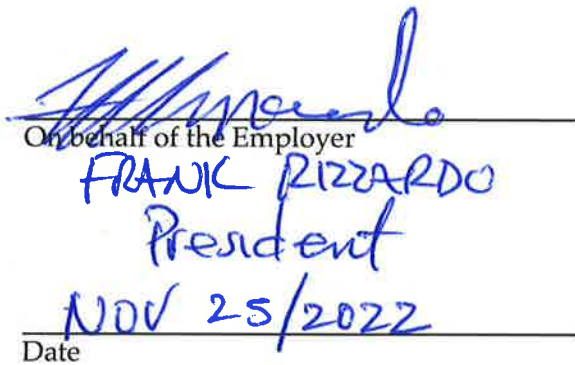 On behalf of the Employer
FRANK RIZZARDO
President
NOV 25/2022
Date